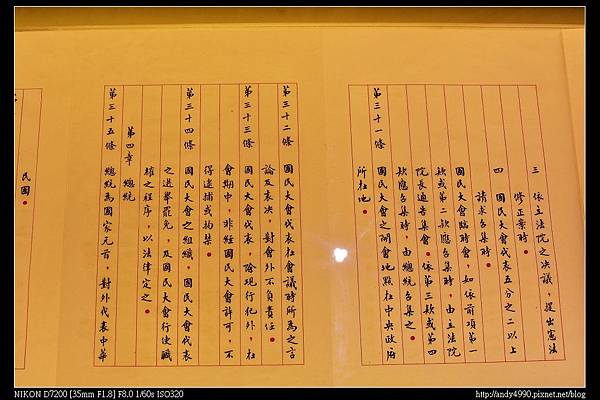 三　依立法院之決議，提出憲法
修正案時。
四　國民大會代表五分之二以上
請求召集時。
國民大會臨時會，如依前項第一
款或第二款應召集時，由立法院
院長通告集會。依第三款或第四
款應召集時，由總統召集之。
第三十一條　國民大會之開會地點在中央政府
所在地。
第三十二條　國民大會代表在會議時所為之言
論及表決，對會外不負責任。
第三十三條　國民大會代表，除現行犯外，在
會期中，非經國民大會許可，不
得逮捕或拘禁。
第三十四條　國民大會之組織，國民大會代表
之選舉罷免，及國民大會行使職
權之程序，以法律定之。
第四章　總統
第三十五條　總統為國家元首，對外代表中華
民國。
NIKON D7200 [35mm F1.8] F8.0 1/60s ISO320
http://andy4990.pixnet.net/blog